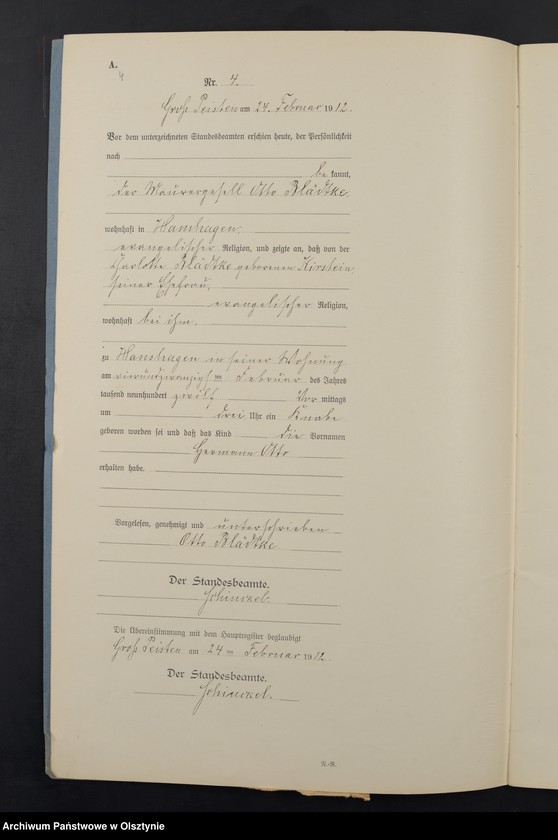 A.
4
Nr. 4.
Groß Peisten am 24. Februar 1912.
Vor dem unterzeichneten Standesbeamten erschien heute, der Persönlichkeit
nach
be kannt,
der Maurergesell Otto Blädtke
wohnhaft in Hanshagen
evangelischer Religion, und zeigte an, daß von der
Charlotte Blädtke geborenen Kirstein,
seiner Ehefrau,
evangelischer Religion,
wohnhaft bei ihm.
zu Hanshagen in seiner Wohnung
am vierundzwanzigsten Februar des Jahres
tausend neunhundert zwölf Vor mittags
um drei Uhr ein Knabe
geboren worden sei und daß das Kind die Vornamen
Hermann Otto
erhalten habe.
Vorgelesen, genehmigt und unterschrieben
Otto Blädtke
Der Standesbeamte.
Schinckel.
Die Übereinstimmung mit dem Hauptregister beglaubigt
Groß Peisten am 24ten Februar 1912.
Der Standesbeamte.
Schinckel.
N.-R.
Archiwum Państwowe w Olsztynie